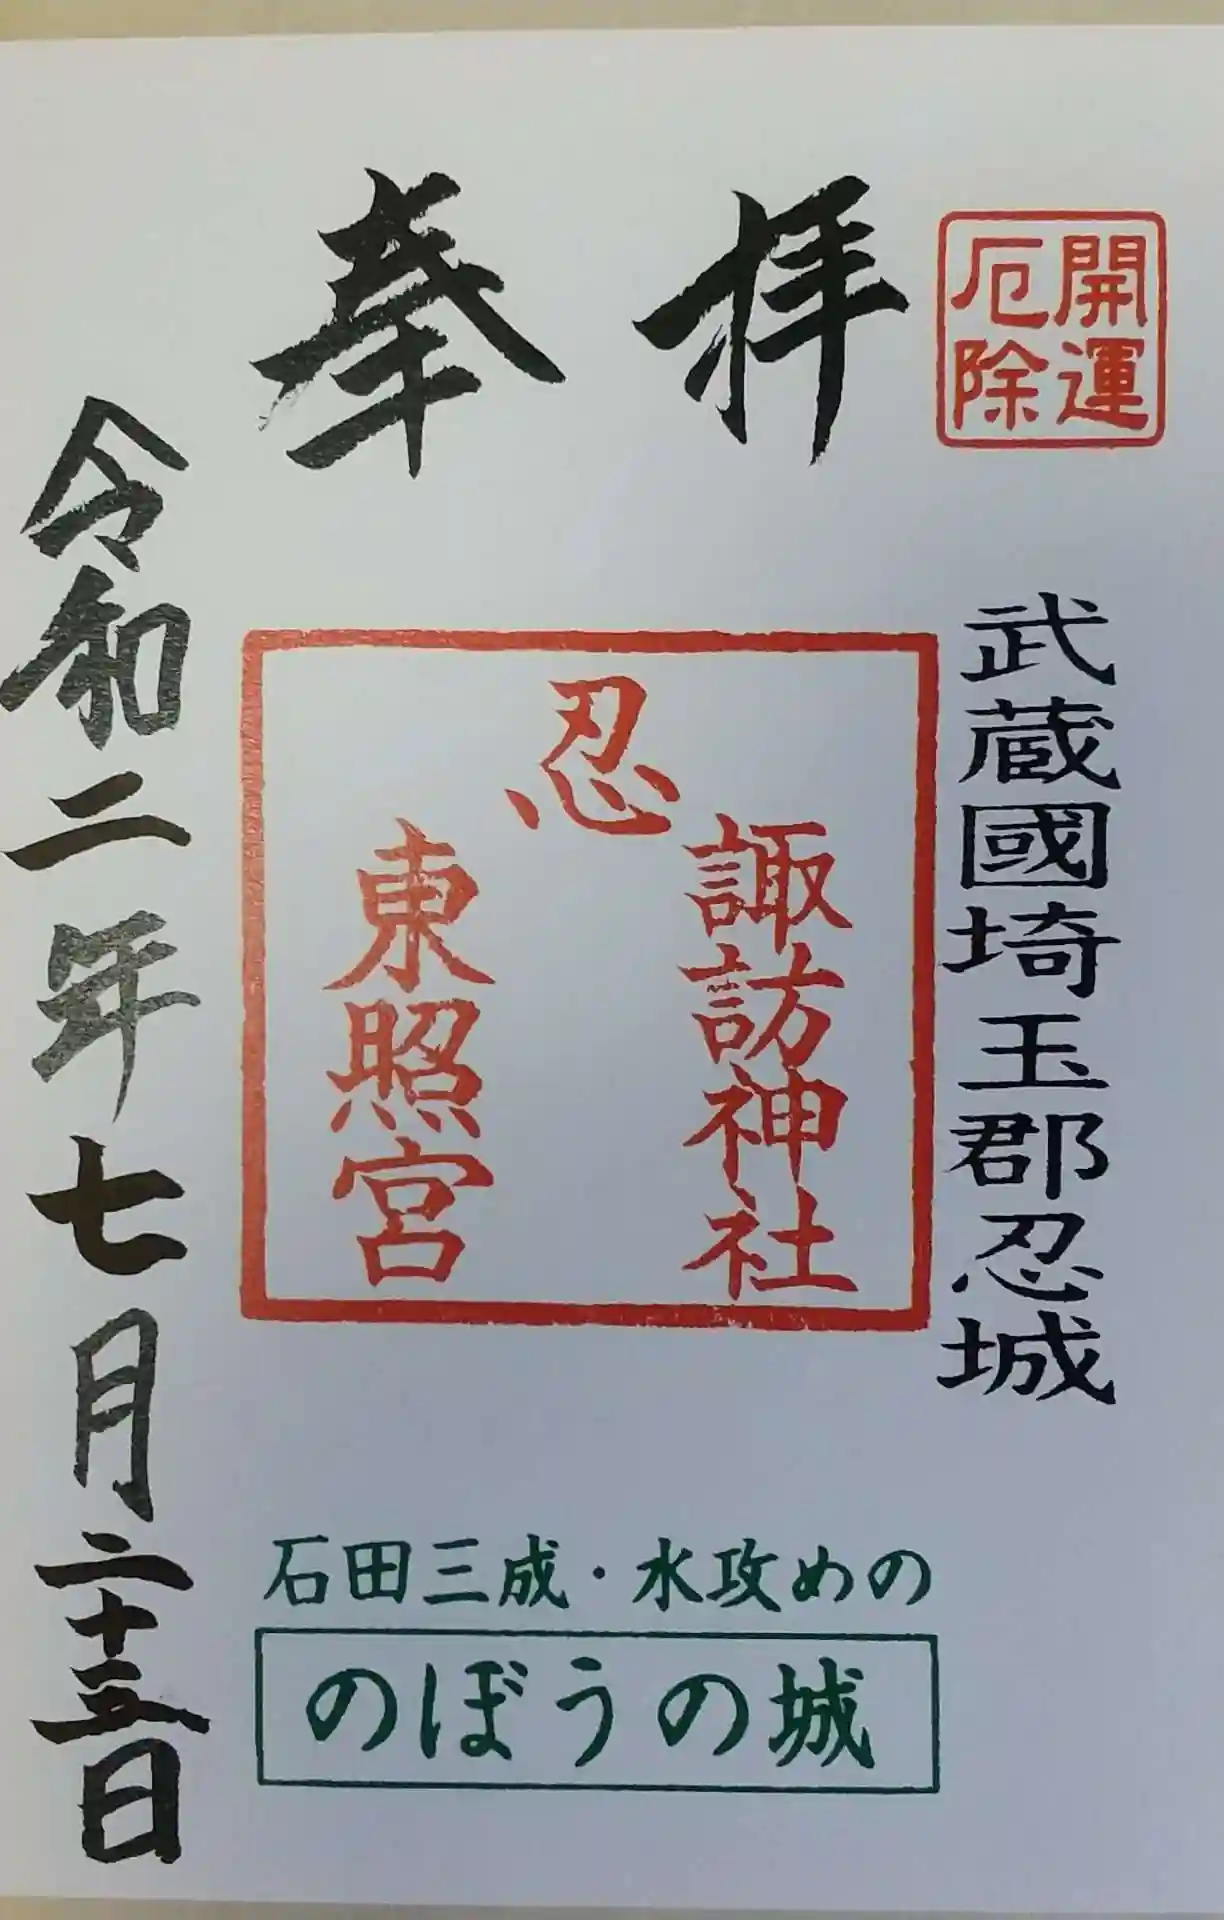 開運
厄除
奉拝
武蔵國埼玉郡忍城
忍
諏訪神社
東照宮
石田三成・水攻めの
のぼうの城
令和二年七月二十五日